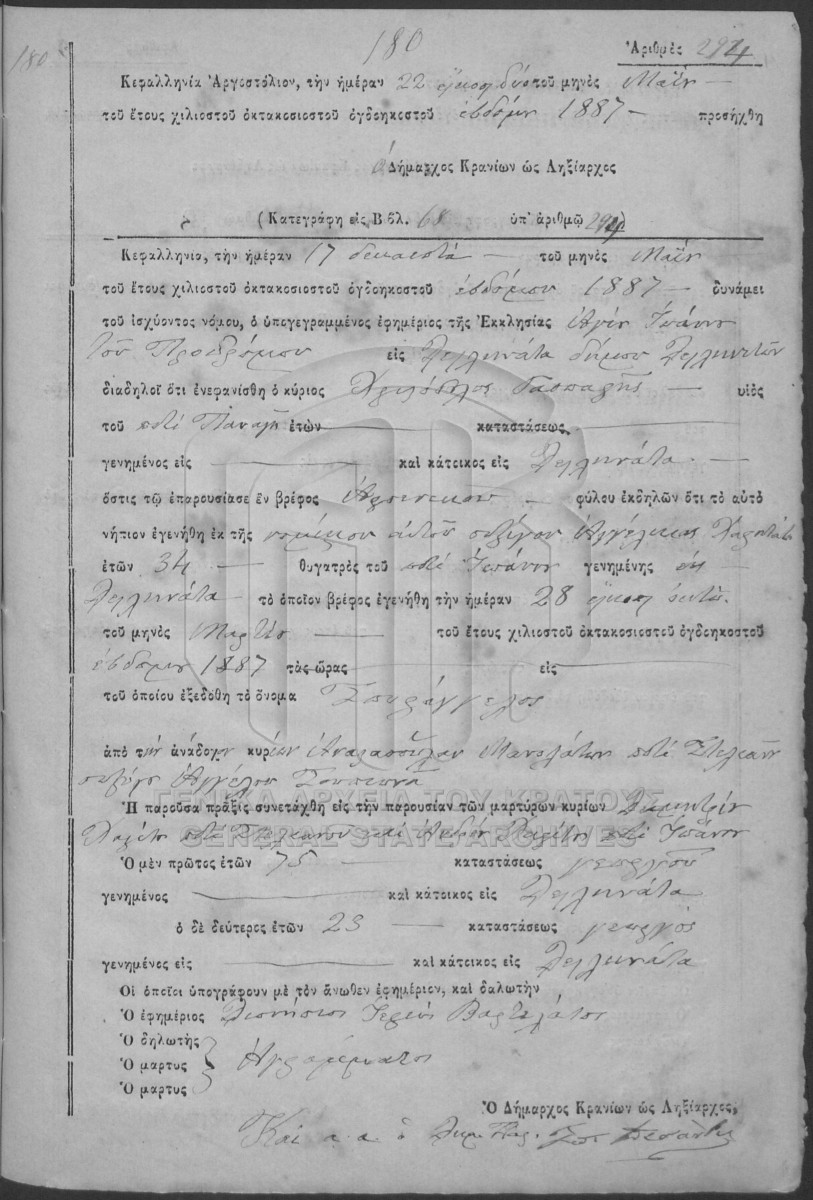 180
180
Ἀριθμὸς 294
Κεφαλληνία Ἀργοστόλιον, τὴν ἡμέραν 22 εἴκοσι δύο τοῦ μηνὸς Μαΐου
τοῦ ἔτους χιλιοστοῦ ὀκτακοσιοστοῦ ὀγδοηκοστοῦ ἑβδόμου 1887 προσήχθη
Ὁ Δήμαρχος Κρανίων ὡς Ληξίαρχος
(Κατεγράφη εἰς Βιβλ. 68 ὑπ' ἀριθμῷ 294)
Κεφαλληνία, τὴν ἡμέραν 17 δεκαεπτά τοῦ μηνὸς Μαΐου
τοῦ ἔτους χιλιοστοῦ ὀκτακοσιοστοῦ ὀγδοηκοστοῦ ἑβδόμου 1887 δυνάμει
τοῦ ἰσχύοντος νόμου, ὁ ὑπογεγραμμένος ἐφημέριος τῆς Ἐκκλησίας Ἁγίου Ἰωάννου
τοῦ Προδρόμου εἰς Διλλινάτα δήμου
διαδηλοῖ ὅτι ἐνεφανίσθη ὁ κύριος υἱὸς
τοῦ ποτὲ Παναγῆ ἐτῶν καταστάσεως
γενημένος εἰς καὶ κάτοικος εἰς Διλλινάτα
ὅστις τῷ ἐπαρουσίασε ἓν βρέφος Ἀρσενικοῦ φύλου ἐκδηλῶν ὅτι τὸ αὐτὸ
νήπιον ἐγενήθη ἐκ τῆς νομίμου αὐτοῦ συζύγου Ἀγγελικῆς
ἐτῶν 34 θυγατρὸς τοῦ ποτὲ Ἰωάννου γενημένης εἰς
Διλλινάτα τὸ ὁποῖον βρέφος ἐγενήθη τὴν ἡμέραν 28 εἴκοσι ὀκτώ
τοῦ μηνὸς Μαρτίου τοῦ ἔτους χιλιοστοῦ ὀκτακοσιοστοῦ ὀγδοηκοστοῦ
ἑβδόμου 1887 τὰς ὥρας εἰς
τοῦ ὁποίου ἐξεδόθη τὸ ὄνομα Σπυράγγελος
ἀπὸ τὴν ἀνάδοχον κυρίαν Μανολάτου ποτὲ
συζύγου Ἀγγέλου
ΓΕΝΙΚΑ ΑΡΧΕΙΑ ΤΟΥ ΚΡΑΤΟΥΣ
Ἡ παροῦσα πρᾶξις συνετάχθη εἰς τὴν παρουσίαν τῶν μαρτύρων κυρίων Δημητρίου
ποτὲ καὶ ποτὲ Ἰωάννου
GENERAL STATE ARCHIVES
Ὁ μὲν πρῶτος ἐτῶν 75 καταστάσεως γεωργοῦ
γενημένος καὶ κάτοικος εἰς Διλλινάτα
ὁ δὲ δεύτερος ἐτῶν 23 καταστάσεως γεωργός
γενημένος εἰς καὶ κάτοικος εἰς Διλλινάτα
Οἱ ὁποῖοι ὑπογράφουν μὲ τὸν ἄνωθεν ἐφημέριον, καὶ δηλωτὴν
Ὁ ἐφημέριος Διονύσιος Ἱερεύς
Ὁ δηλωτὴς
Ὁ μαρτυς Ἀγράμματοι
Ὁ μαρτυς
Ὁ Δήμαρχος Κρανίων ὡς Ληξίαρχος,